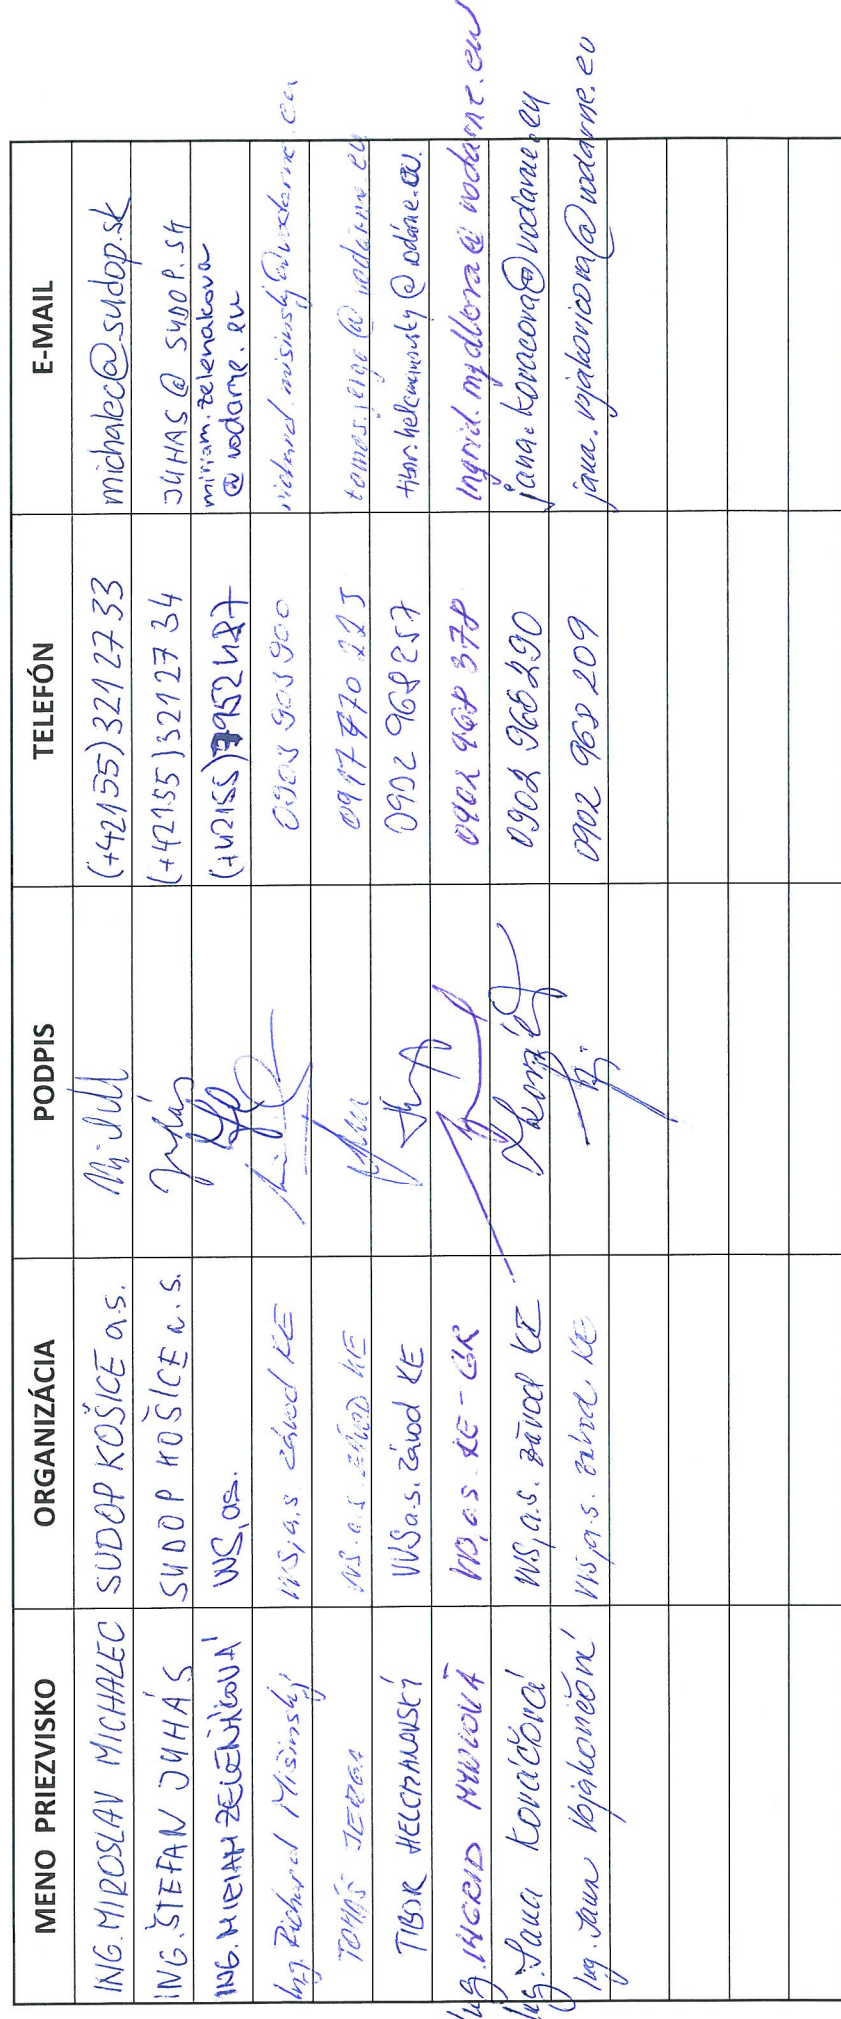 MENO PRIEZVISKO ORGANIZÁCIA PODPIS TELEFÓN E-MAIL
ING. MIROSLAV MICHALEC SUDOP KOŠICE a.s. (+42155) 321 27 33 michalec@sudop.sk
ING. ŠTEFAN JUHÁS SUDOP KOŠICE a.s. (+42155) 321 27 34 JUHAS@SUDOP.SK
ING. MIRIAM ZELEŇÁKOVÁ VVS, a.s. (+42155) 7952487 miriam.zelenakova
@vodarne.eu
Ing. Richard Mišinský VVS, a.s. závod KE richard.misinsky@vodarne.eu
TOMÁŠ JERGA VVS a.s. ZÁVOD KE tomas.jerga@vodarne.eu
TIBOR HELCMANOVSKÝ VVS a.s. Závod KE 0902 968257 tibor.helcmanovsky@vodárne.eu.
Ing. INGRID MYDLOVÁ VVS, a.s. KE-GR 0902 968 378 ingrid.mydlova@vodarne.eu
Ing. Jana Kováčová VVS, a.s. závod KE jana.kovacova@vodarne.eu
Ing. Jana Vojakovičová VVS, a.s. závod KE 0902 968 209 jana.vojakovicova@vodarne.eu